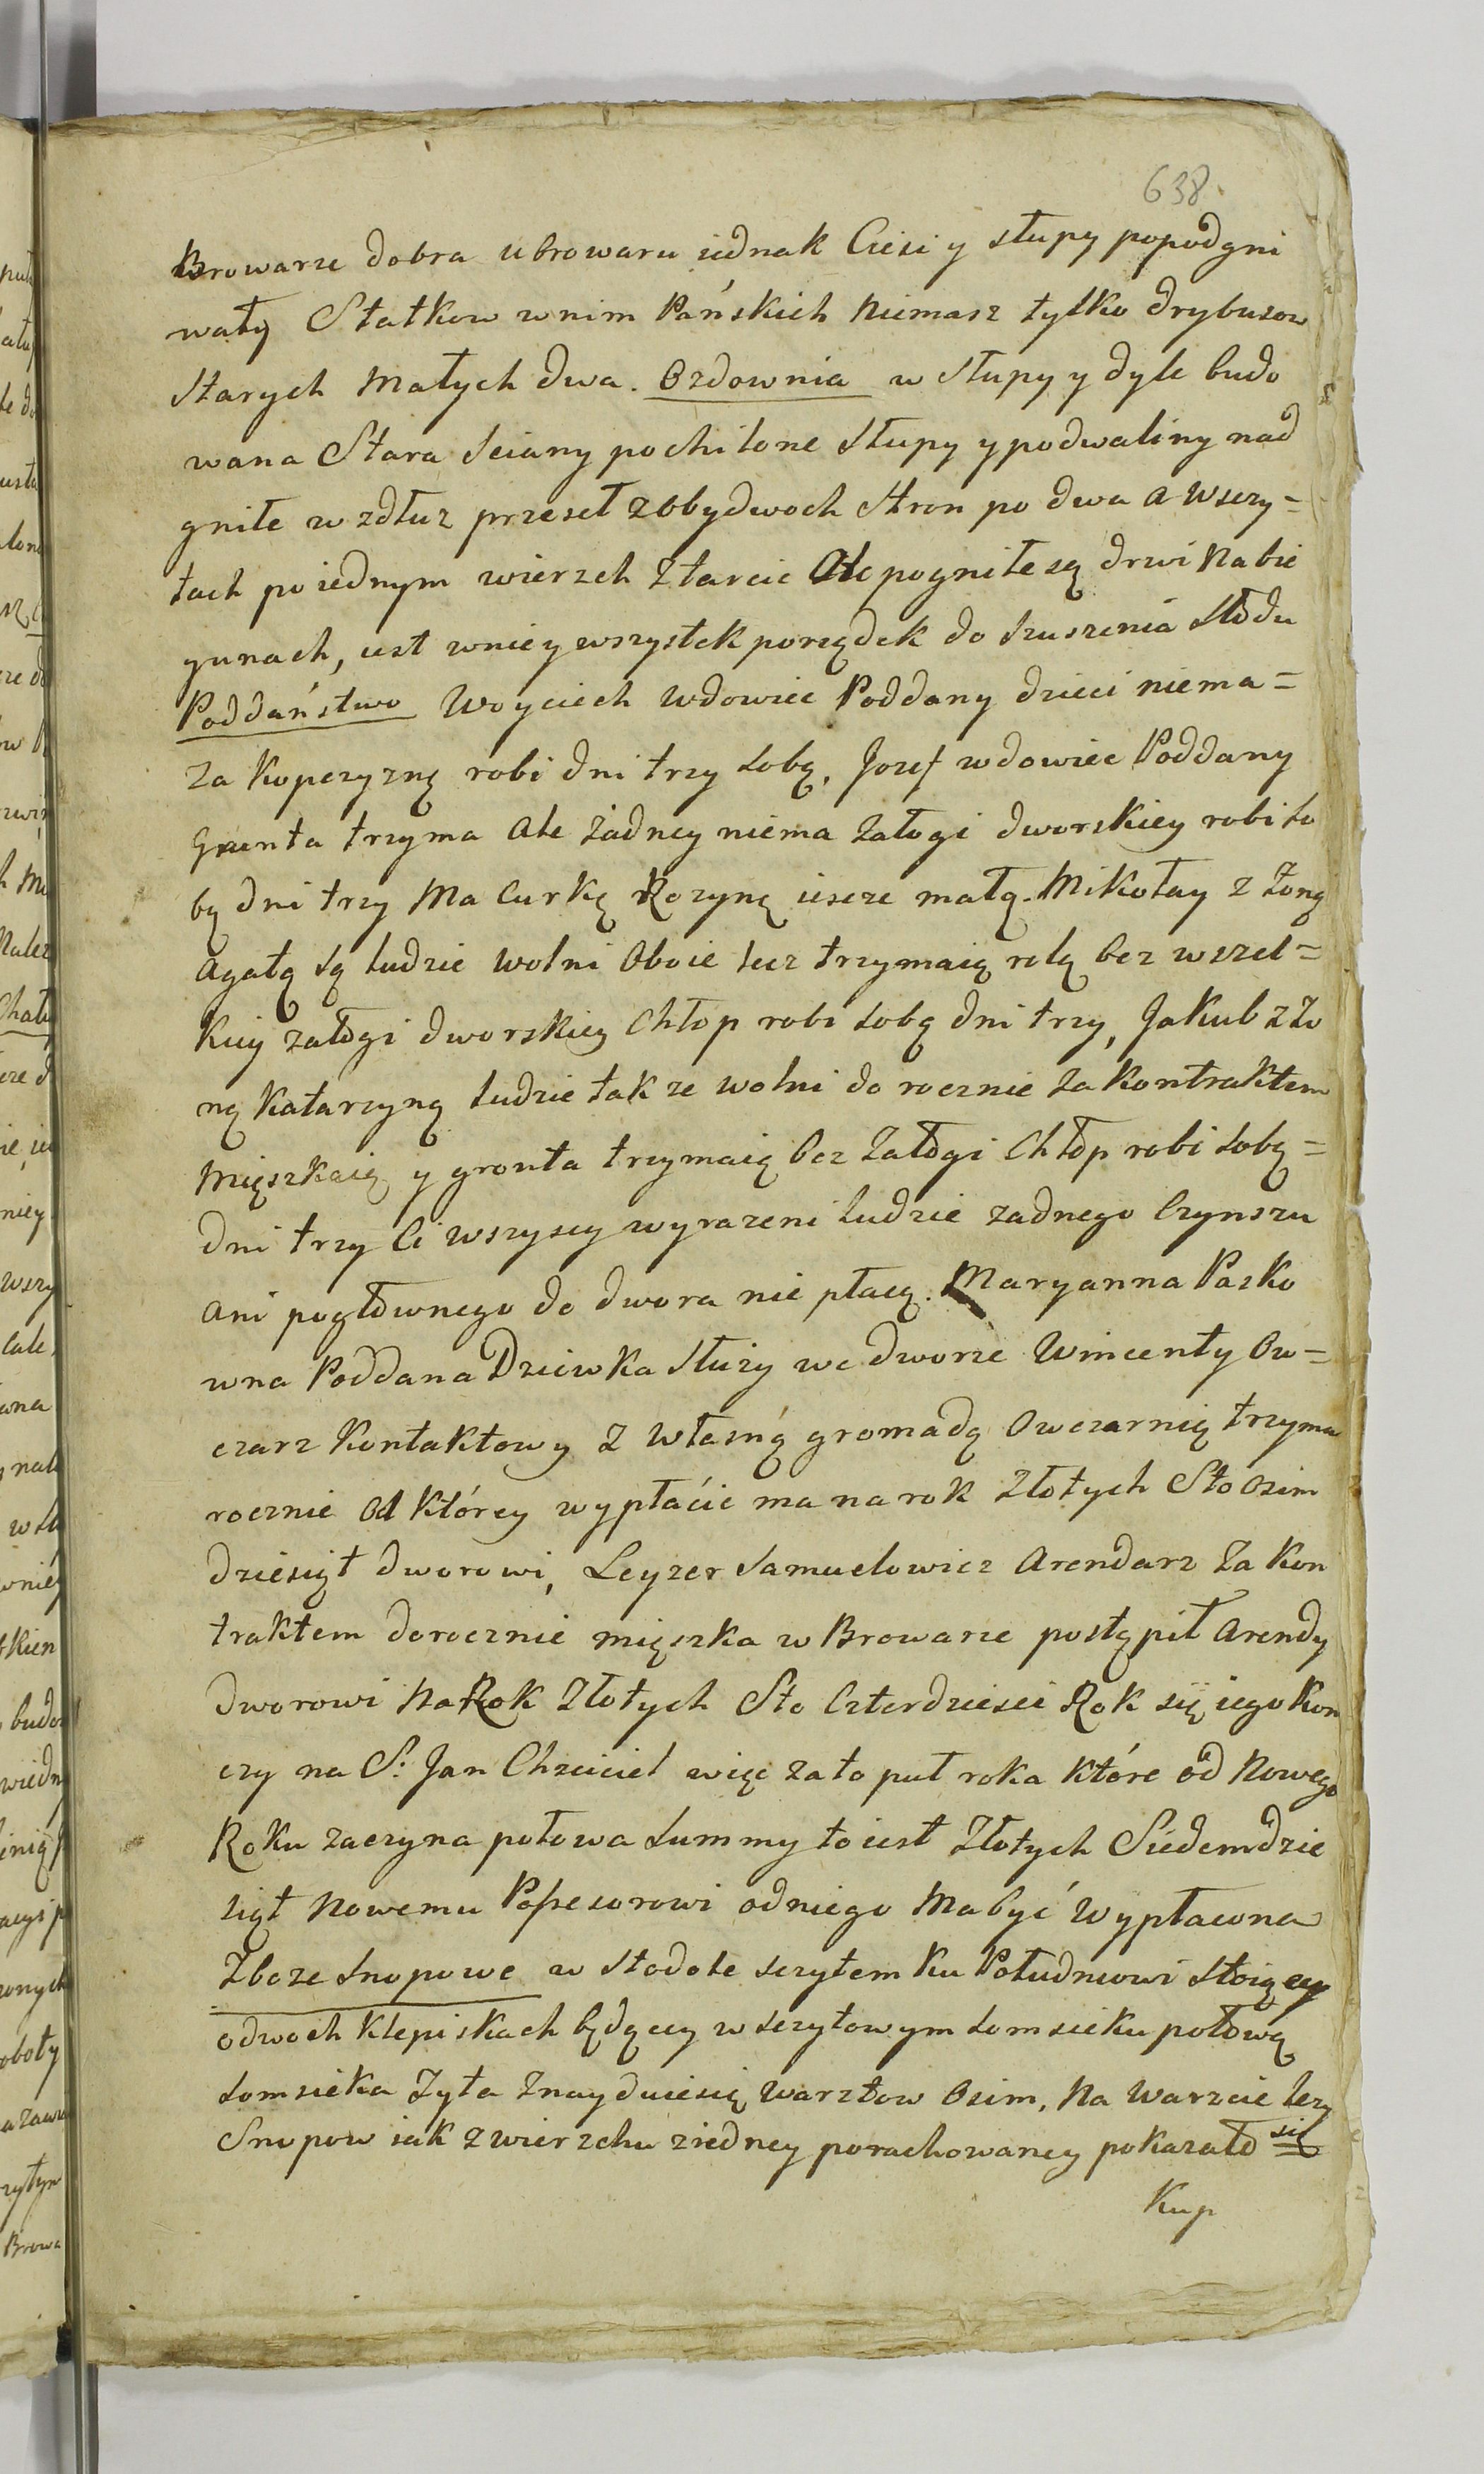 638.
Browarze dobra u browaru iednak Ciesi y słupy popodgni
wały Statkow w nim Pańskich Niemasz tylko drybusow
Starych Małych dwa. Ozdownia w słupy y dyle budo
wana Stara Sciany pochilone Słupy y podwaliny nad
gniłe w zdłuz przeseł z obydwoch Stron po dwa a w szczy=
tach po iednym wierzch z tarcic Ale pogniłe są drzwi Na bie
gunach, iest w niey wszystek porządek do Szuszenia Słodu
Poddaństwo Woyciech Wdowiec Poddany dzieci niema=
za Kopczyznę robi dni trzy sobą. Jozef wdowiec Poddany
Grunta trzyma Ale żadney niema Załogi dworskiey robi so
bą dni trzy Ma Curkę Rozynę iescze małą. Mikołay z Żoną
Agatą są ludzie wolni Oboie lecz trzymaią rolą bez wszel=
kiey załogi dworskiey Chłop robi sobą dni trzy, Jakub z Żo
ną Katarzyną ludzie takze wolni do rocznie za Kontraktem
Mięszkaią y gronta trzymaią bez Załogi Chłop robi sobą=
dni trzy Ci wszyscy wyrazeni ludzie zadnego Czynszu
ani pogłownego do dwora nie płacą. Maryanna Pasko
wna Poddana Dziewka służy we dworze Wincenty Ow=
czarz Kontaktowy z własną gromadą Owczarnią trzyma
rocznie od którey wypłácic ma na rok Złotych Sto osim
dziesiąt dworowi, Leyzer Samuelowicz Arendarz za Kon
traktem dorocznie mięszka w Browarze postąpił Arendy
dworowi Na Rok Złotych Sto Czterdziesci Rok się iego Kon
czy na S: Jan Chrzciciel więc za to puł roka które od Nowego
Roku zaczyna połowa Summy to iest Złotych Siedemdzie
siąt Nowemu Possesorowi od niego Ma być wypłacona
Zboze Snopowe w stodole szczytem ku Południowi stoiącey
o dwoch klepiskach będącey w szczytowym somsieku połowę
somsieka Żyta Znayduie się Warztow Osim, Na Warzcie leży
Snopow iak z wierzchu z iedney porachowaney pokazało się
Kup